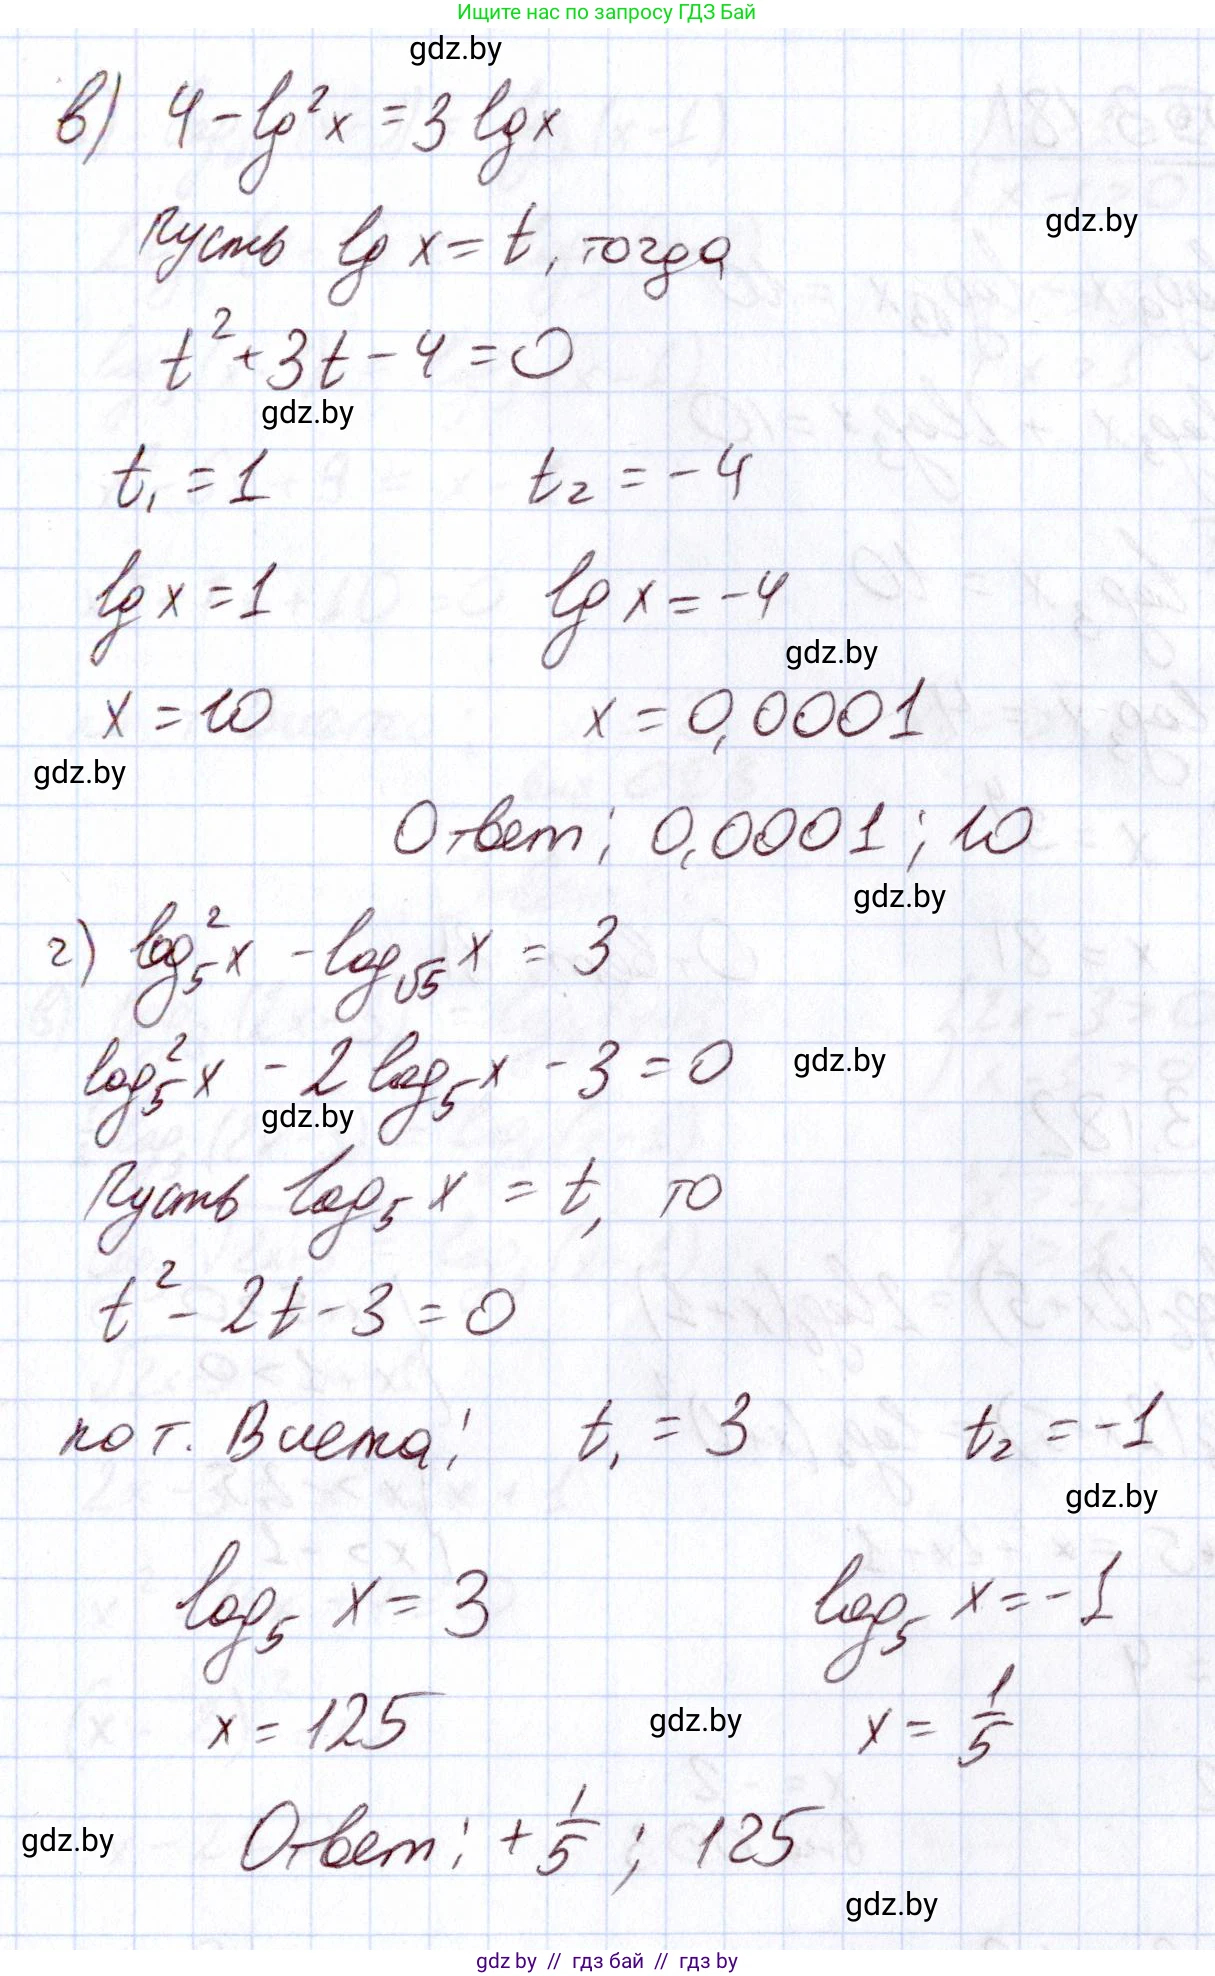 Ищите нас по запросу ГДЗ Бай
gdz.by
в) 4 - lg²x = 3 lg x
Пусть lg x = t, тогда
gdz.by
t² + 3t - 4 = 0
gdz.by
t₁ = 1 t₂ = -4
lg x = 1 lg x = -4
gdz.by
x = 10 x = 0,0001
gdz.by
Ответ: 0,0001; 10
gdz.by
г) log₅²x - log_√5 x = 3
log₅²x - 2 log₅x - 3 = 0
gdz.by
gdz.by
Пусть log₅x = t, то
t² - 2t - 3 = 0
по т. Виета: t₁ = 3 t₂ = -1
gdz.by
log₅ x = 3 log₅ x = -1
x = 125 x = 1/5
gdz.by
Ответ: + 1/5; 125
gdz.by
gdz.by
gdz.by // гдз бай // гдз by